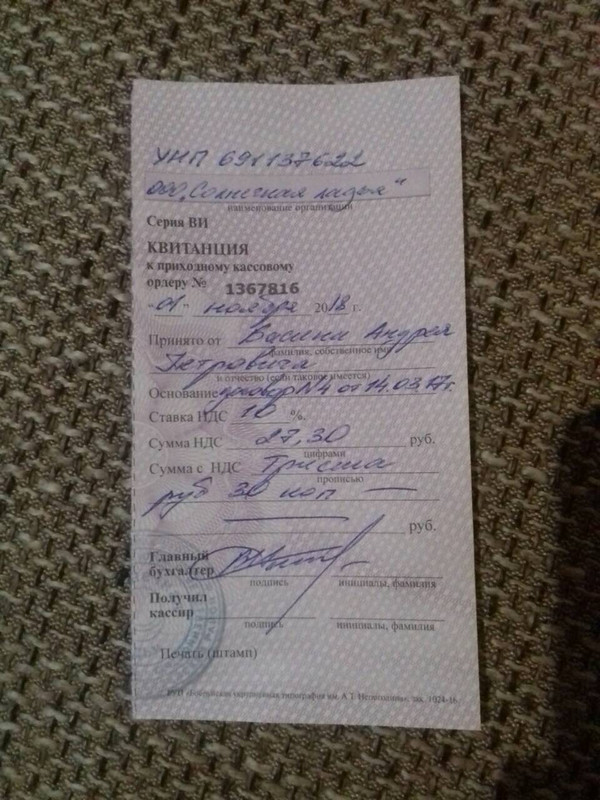 УНП 691137622
ООО „Солнечная ладья"
наименование организации
Серия ВИ
КВИТАНЦИЯ
к приходному кассовому
ордеру № 1367816
"01" ноября 2018 г.
Принято от Васина Андрея
фамилия, собственное имя
Петровича
и отчество (если таковое имеется)
Основание договор №4 от 14.03.17г.
Ставка НДС 10 %.
Сумма НДС 27,30 руб.
цифрами
Сумма с НДС Триста
прописью
руб 30 коп —
руб.
Главный
бухгалтер
подпись инициалы, фамилия
Получил
кассир
подпись инициалы, фамилия
Печать (штамп)
РУП укрупненная типография им. А.Т. зак. 1024-16